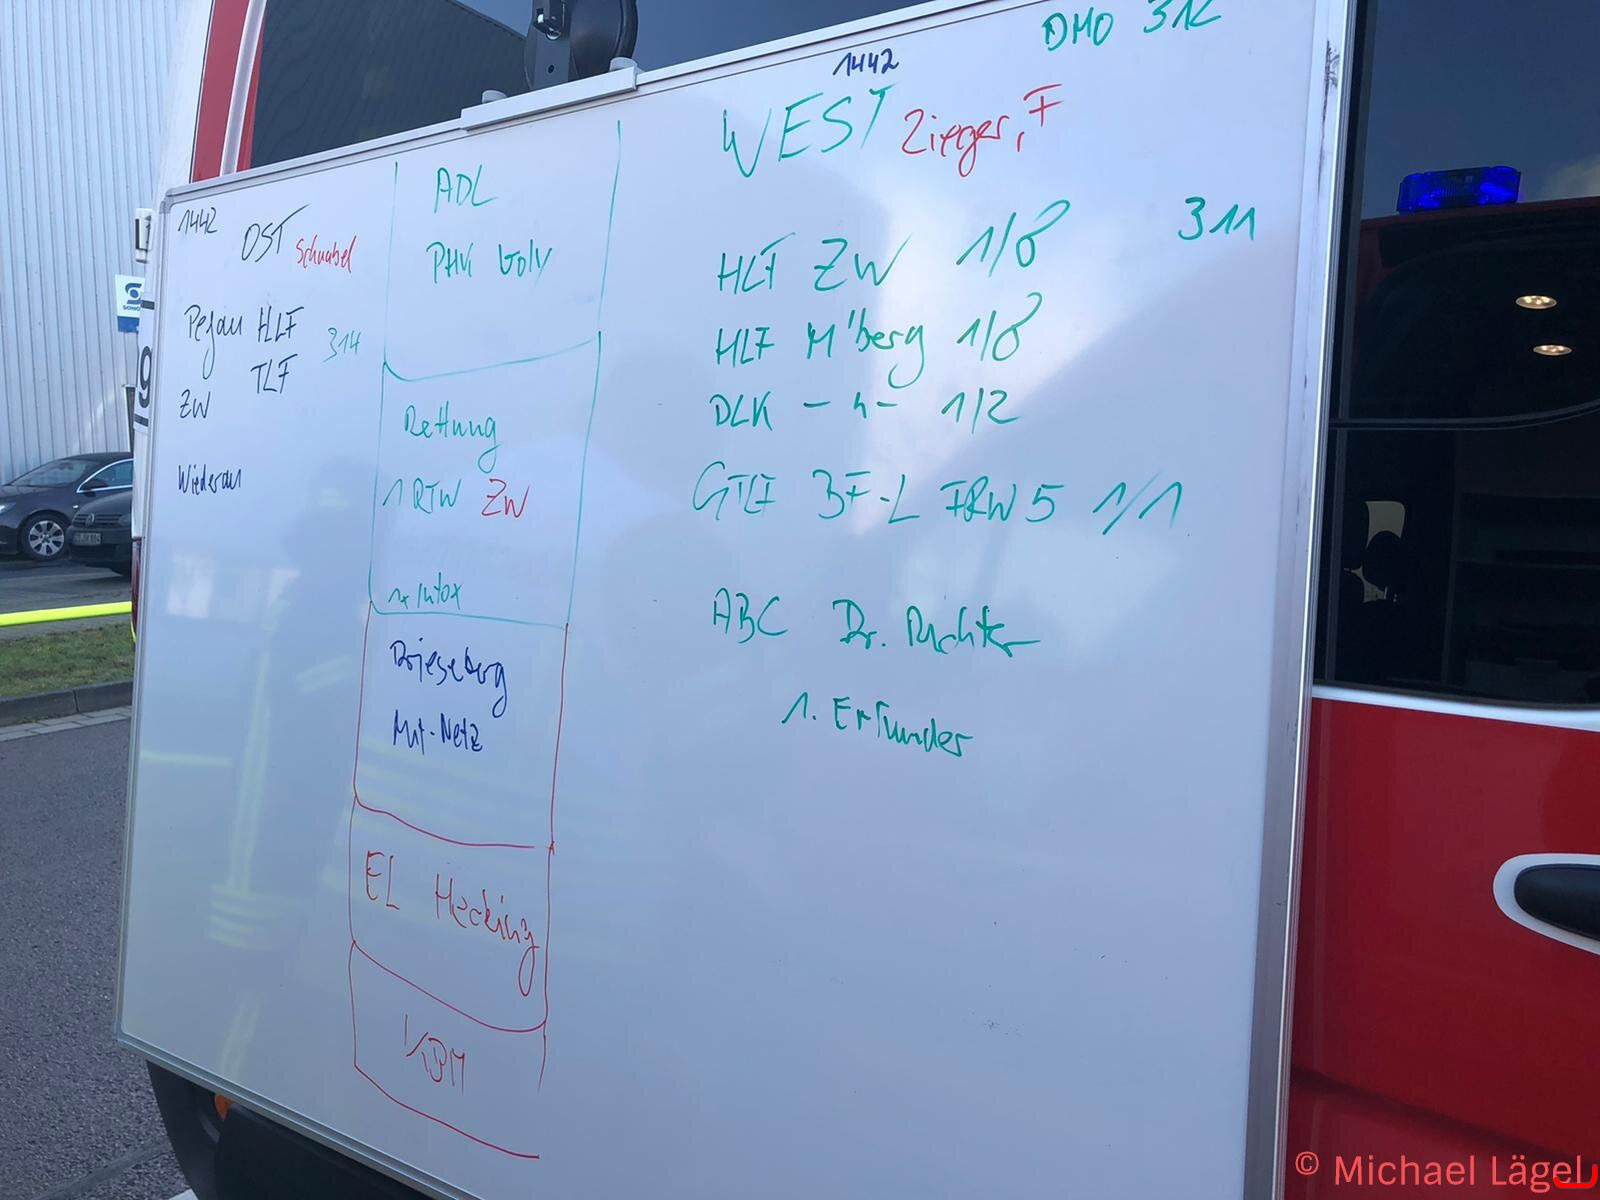 1442
OST Schnabel
Pegau HLF 314
TLF
ZW
Wiederau
ADL
Rettung
1 RTW ZW
1x Intox
Mit-Netz
EL Hecking
KBM
DMO 312
1442
WEST Zieger, F
311
HLF ZW 1/8
HLF M'berg 1/8
DLK - " - 1/2
GTLF BF-L FRW 5 1/1
ABC Dr. Richter
1. Erkunder
g
© Michael Lägel